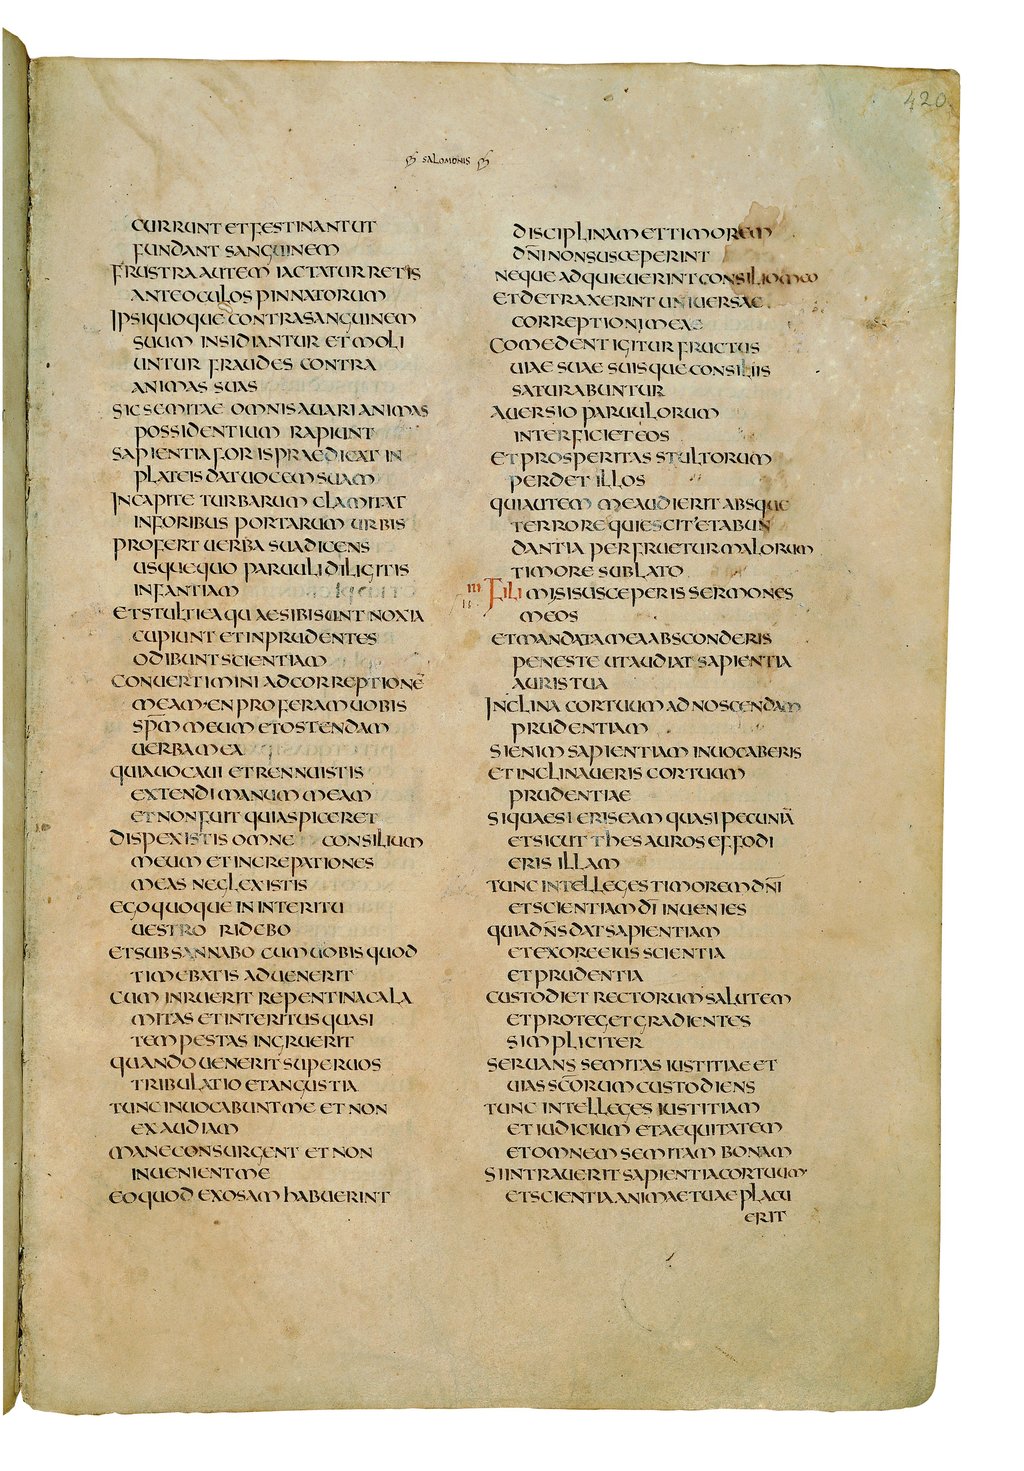 420
SALOMONIS
CURRUNT ET FESTINANT UT
FUNDANT SANGUINEM
FRUSTRA AUTEM IACTATUR RETIS
ANTE OCULOS PINNATORUM
IPSI QUOQUE CONTRA SANGUINEM
SUUM INSIDIANTUR ET MOLI
UNTUR FRAUDES CONTRA
ANIMAS SUAS
SIC SEMITAE OMNIS AUARI ANIMAS
POSSIDENTIUM RAPIUNT
SAPIENTIA FORIS PRAEDICAT IN
PLATEIS DAT UOCEM SUAM
IN CAPITE TURBARUM CLAMITAT
IN FORIBUS PORTARUM URBIS
PROFERT UERBA SUA DICENS
USQUEQUO PARUULI DILIGITIS
INFANTIAM
ET STULTI EA QUAE SIBI SUNT NOXIA
CUPIUNT ET INPRUDENTES
ODIBUNT SCIENTIAM
CONUERTIMINI AD CORREPTIONĒ
MEAM EN PROFERAM UOBIS
SPM̄ MEUM ET OSTENDAM
UERBA MEA
QUIA UOCAUI ET RENNUISTIS
EXTENDI MANUM MEAM
ET NON FUIT QUI ASPICERET
DISPEXISTIS OMNE CONSILIUM
MEUM ET INCREPATIONES
MEAS NEGLEXISTIS
EGO QUOQUE IN INTERITU
UESTRO RIDEBO
ET SUBSANNABO CUM UOBIS QUOD
TIMEBATIS ADUENERIT
CUM INRUERIT REPENTINA CALA
MITAS ET INTERITUS QUASI
TEMPESTAS INGRUERIT
QUANDO UENERIT SUPER UOS
TRIBULATIO ET ANGUSTIA
TUNC INUOCABUNT ME ET NON
EXAUDIAM
MANE CONSURGENT ET NON
INUENIENT ME
EO QUOD EXOSAM HABUERINT
DISCIPLINAM ET TIMOREM
DN̄I NON SUSCEPERINT
NEQUE ADQUIEUERINT CONSILIO MEO
ET DETRAXERINT UNIUERSAE
CORREPTIONI MEAE
COMEDENT IGITUR FRUCTUS
UIAE SUAE SUISQUE CONSILIIS
SATURABUNTUR
AUERSIO PARUULORUM
INTERFICIET EOS
ET PROSPERITAS STULTORUM
PERDET ILLOS
QUI AUTEM ME AUDIERIT ABSQUE
TERRORE QUIESCIT ET ABUN
DANTIA PERFRUETUR MALORUM
TIMORE SUBLATO
FILI MI SI SUSCEPERIS SERMONES
MEOS
ET MANDATA MEA ABSCONDERIS
PENES TE UT AUDIAT SAPIENTIA
AURIS TUA
INCLINA COR TUUM AD NOSCENDAM
PRUDENTIAM
SI ENIM SAPIENTIAM INUOCABERIS
ET INCLINAUERIS COR TUUM
PRUDENTIAE
SI QUAESIERIS EAM QUASI PECUNIĀ
ET SICUT THESAUROS EFFODI
ERIS ILLAM
TUNC INTELLEGES TIMOREM DN̄I
ET SCIENTIAM DĪ INUENIES
QUIA DN̄S DAT SAPIENTIAM
ET EX ORE EIUS SCIENTIA
ET PRUDENTIA
CUSTODIET RECTORUM SALUTEM
ET PROTEGET GRADIENTES
SIMPLICITER
SERUANS SEMITAS IUSTITIAE ET
UIAS SC̄ORUM CUSTODIENS
TUNC INTELLEGES IUSTITIAM
ET IUDICIUM ET AEQUITATEM
ET OMNEM SEMITAM BONAM
SI INTRAUERIT SAPIENTIA COR TUUM
ET SCIENTIA ANIMAE TUAE PLACU
ERIT